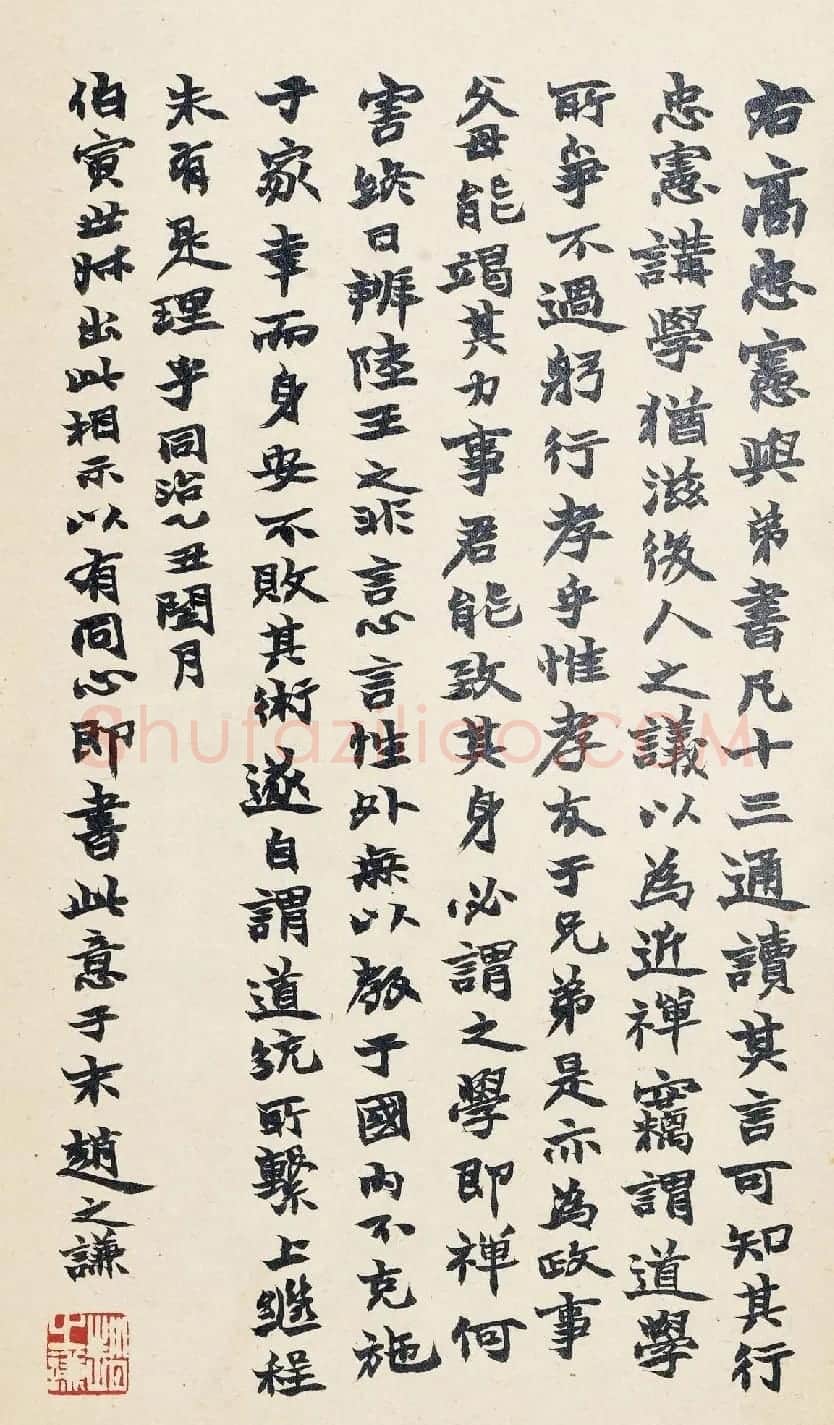 右高忠憲與弟書凡十三通讀其言可知其行
忠憲講學猶滋後人之議以為近禪竊謂道學
所爭不過躬行孝乎惟孝友于兄弟是亦為政事
父母能竭其力事君能致其身必謂之學即禪何
害終日辨陸王之非言心言性外無以教于國內不克施
于家幸而身安不敗其術遂自謂道統所繫上繼程
朱有是理乎同治乙丑閏月
伯寅世叔出此相示以有同心即書此意于末趙之謙
趙之謙
shufaziliao.COM